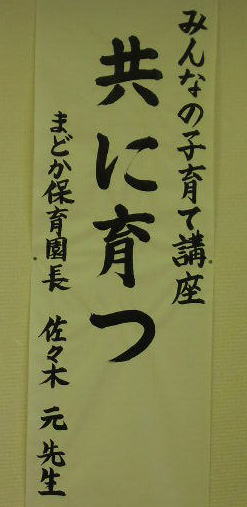 みんなの子育て講座
共に育つ
まどか保育園長 佐々木 元 先生